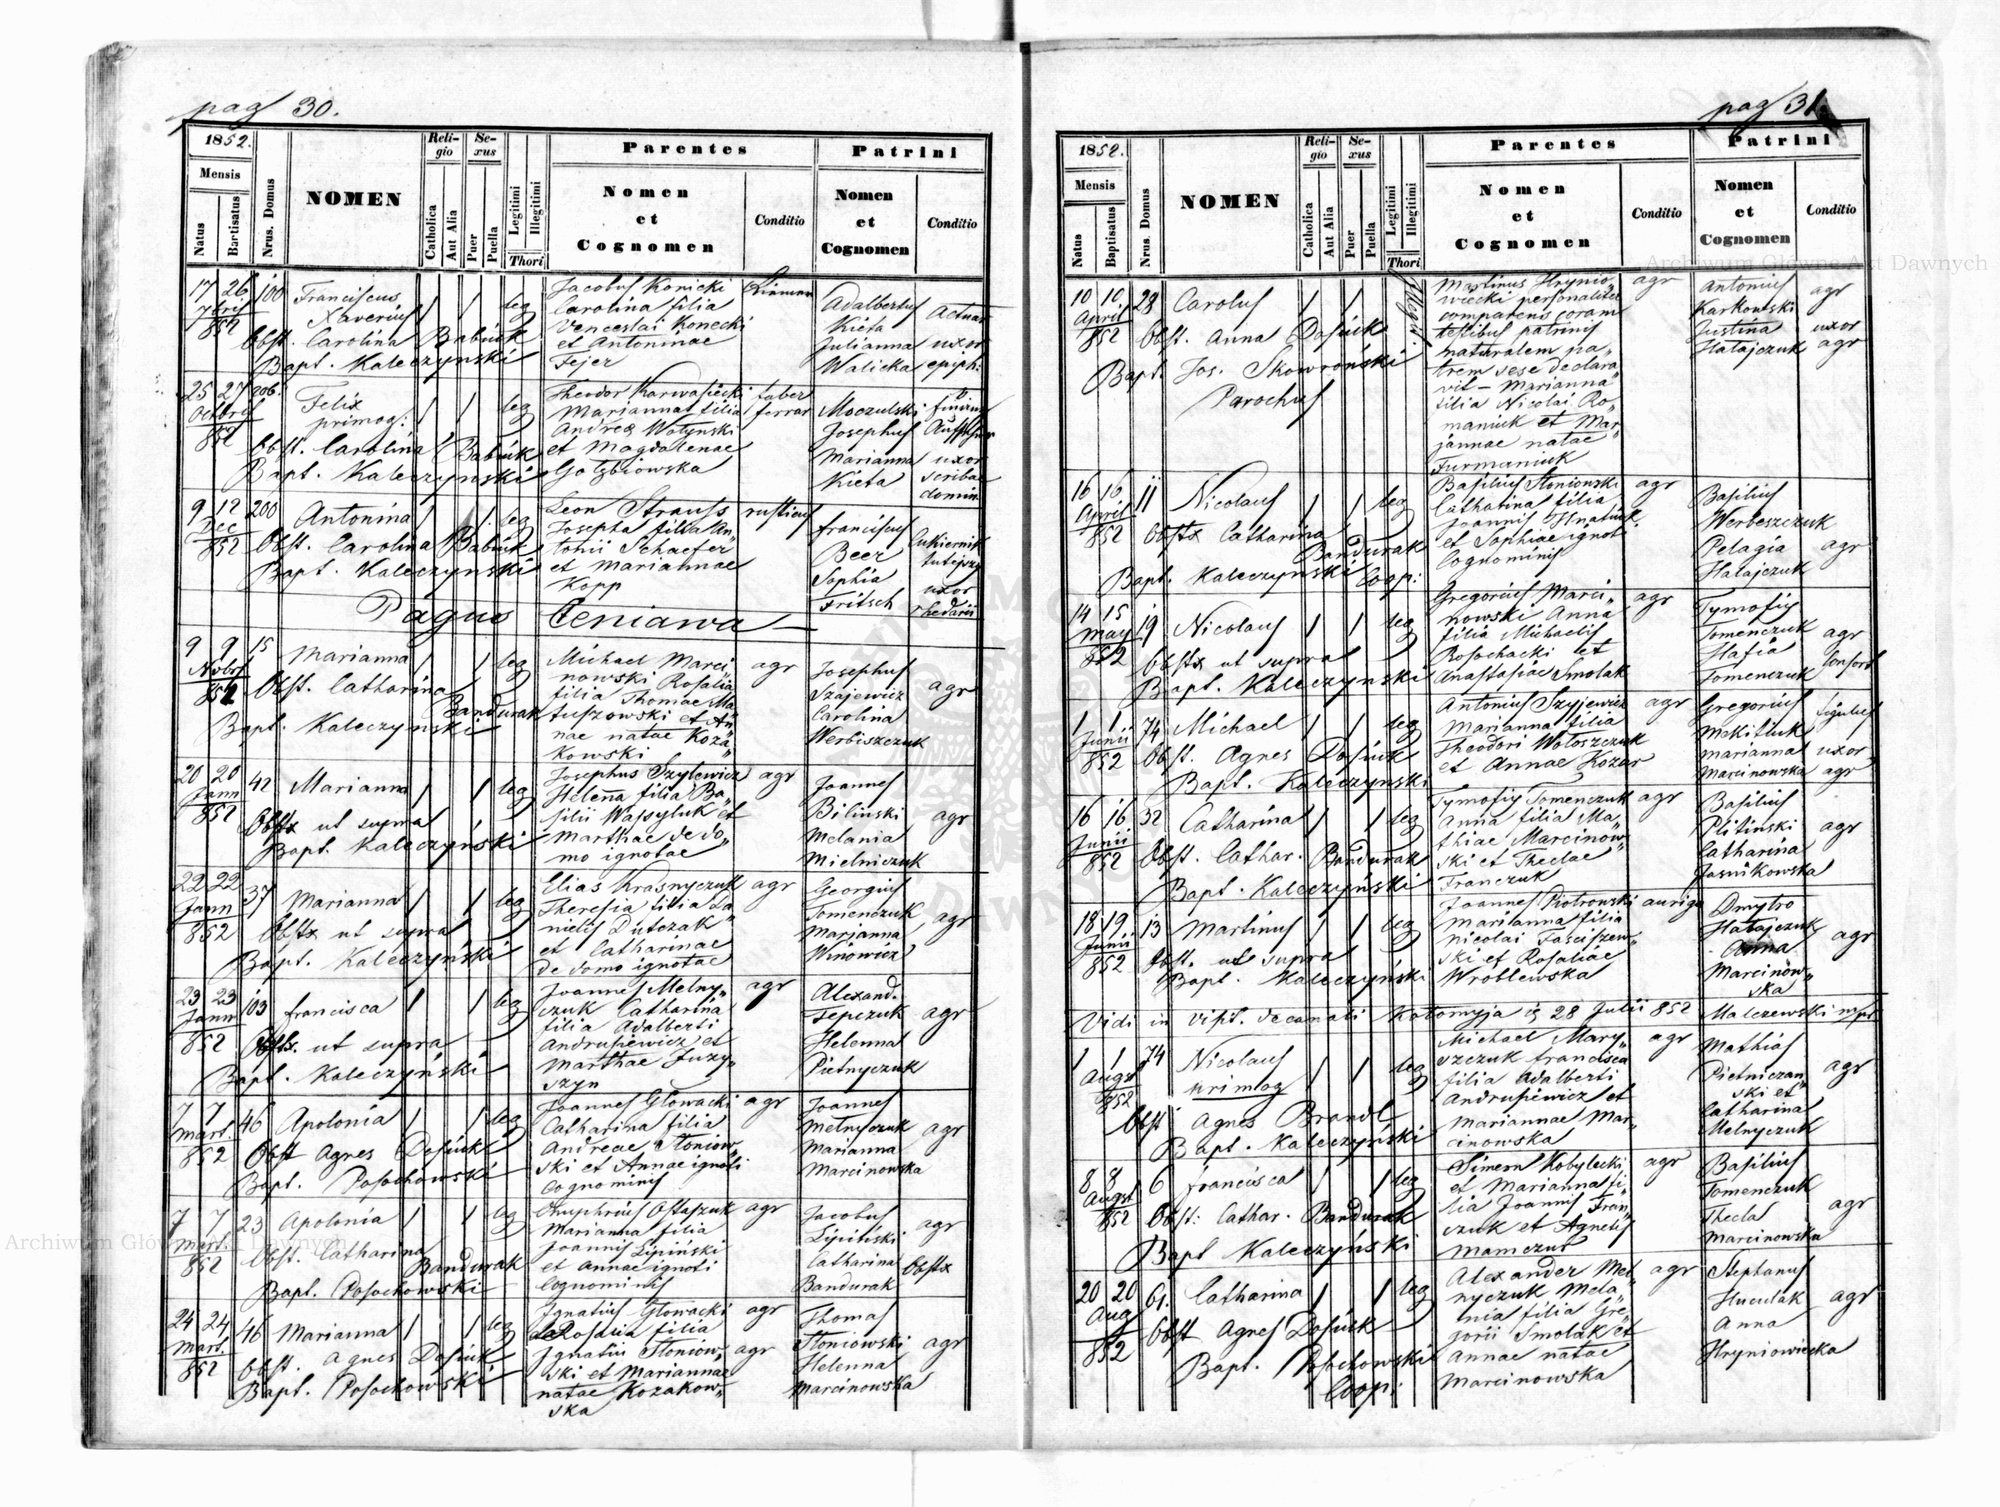 pag 30.
1852.
Mensis
Natus
Bartisatus
Nrus. Domus
NOMEN
Religio
Catholica
Aut Alia
Sexus
Puer
Puella
Legitimi
Illegitimi
Thori
Parentes
Nomen
et
Cognomen
Conditio
Patrini
Nomen
et
Cognomen
Conditio
17 26 100 Franciscus
Xaverius
7bris
852
leg
Obst. Carolina Babiuk
Bapt. Kaleczynski
Jacobus Konicki
Carolina filia
Venceslai Konecki
et Antoninae
Fejer
Adalbertus
Kieta
Julianna
Walicka
Actuar
uxor
epiph:
25 27 206
Octbris
852
Felix
primog:
leg
Obst. Carolina Babiuk
Bapt. Kaleczynski
Theodor Karwasiecki
Marianna filia
Andrea Wolynski
et Magdalenae
Gołębiowska
faber
ferrar
Moczulski
Josephus
Marianna
Kieta
uxor
scribae
domin
9 12 200
Dec
852
Antonina
leg
Obst. Carolina Babiuk
Bapt. Kaleczynski
Leon Strauss
Josepha filia An„
tonii Schaefer
et Mariannae
Kopp
rusticus
Franciscus
Beer
Sophia
Fritsch
Cukiernik
tutejszy
uxor
Rhedarii
Pagus Ceniawa
9 9 15
Nobr
852
Marianna
leg
Obst. Catharina
Bandurak
Bapt. Kaleczynski
Michael Marci„
nowski Rosalia
filia Thomae Ma„
tuszowski et An„
nae natae Koza„
kowski
agr
Josephus
Szajewicz
Carolina
Werbiszczuk
agr
20 20 42
Jann
852
Marianna
leg
Obstx ut supra
Bapt. Kaleczynski
Josephus Szylewicz
Helena filia Ba„
silii Wasyluk et
Marthae de do„
mo ignotae
agr
Joannes
Biliński
Melania
Mielniczuk
agr
22 22 37
Jann
852
Marianna
leg
Obstx ut supra
Bapt. Kaleczyński
Elias Krasnyczuk
Theresia filia Da„
nielis Dutczak
et Catharinae
de domo ignotae
agr
Georgius
Tomenczuk
Marianna
Winowicz
agr
23 23 103
Jann
852
Francisca
leg
Obstx. ut supra
Bapt. Kaleczyński
Joannes Melny„
czuk Catharina
filia Adalberti
Andrusiewicz et
Marthae Juzy„
szyn
agr
Alexand.
Tepczuk
Helenna
Pietnyczuk
agr
7 7 46
Mart.
852
Apolonia
leg
Obst Agnes Dosiuk
Bapt. Posochowski
Joannes Głowacki
Catharina filia
Andreae Słoniow„
ski et Annae ignoti
Cognominis
agr
Joannes
Melnyczuk
Marianna
Marcinowska
agr
7 7 23
Mart.
852
Apolonia
leg
Obst. Catharina
Bandurak
Bapt. Posochowski
Onuphrius Ostaszuk
Marianna filia
Joannis Lipiński
et Annae ignoti
Cognominis
agr
Jacobus
Lipiński
Catharina
Bandurak
agr
Obstx
24 24 46
Mart.
852
Marianna
leg
Obst. Agnes Dosiuk
Bapt. Posochowski
Ignatius Głowacki
Rosalia filia
Ignatii Słoniow„
ski et Mariannae
natae Kozakow„
ska
agr
agr
Thomas
Słoniowski
Helenna
Marcinowska
agr
pag 31.
1852.
Mensis
Natus
Baptisatus
Nrus. Domus
NOMEN
Religio
Catholica
Aut Alia
Sexus
Puer
Puella
Legitimi
Illegitimi
Thori
Parentes
Nomen
et
Cognomen
Conditio
Patrini
Nomen
et
Cognomen
Conditio
10 10 28
April
852
Carolus
Illegit.
Obst. Anna Dosiuk
Bapt. Jos. Skowroński
Parochus
Martinus Hrynio„
wiecki personaliter
comparens coram
testibus patrinis
naturalem pa„
trem sese declara„
vit – Marianna
filia Nicolai Ro„
maniuk et Mar„
jannae natae
Furmaniuk
agr
Antonius
Karkowski
Justina
Hatajczuk
agr
uxor
agr
16 16 11
April
852
Nicolaus
leg
Obstx Catharina
Bandurak
Bapt. Kaleczynski Coop:
Basilius Słoniowski
Catharina filia
Joannis Hnatiuk
et Sophiae ignoti
Cognominis
agr
Basilius
Werbeszczuk
Pelagia
Hatajczuk
agr
14 15 19
May
852
Nicolaus
leg
Obstx ut supra
Bapt. Kaleczynski
Gregorius Marci„
nowski Anna
filia Michaelis
Rosochacki et
Anastasiae Smolak
agr
Tymofiy
Tomenczuk
Hafia
Tomenczuk
agr
Consors
1 1 74
Junii
852
Michael
leg
Obst. Agnes Dosiuk
Bapt. Kaleczynski
Antonius Szyjewicz
Marianna filia
Theodori Wołoszczuk
et Annae Kozar
agr
Gregorius
Mekitiuk
Marianna
Marcinowska
figulus
uxor
agr
16 16 32
Junii
852
Catharina
leg
Obst. Cathar. Bandurak
Bapt. Kaleczyński
Tymofiy Tomenczuk
Anna filia Ma„
thiae Marcinow„
ski et Theclae
Franczuk
agr
Basilius
Plitinski
Catharina
Jasnikowska
agr
18 19 13
Junii
852
Martinus
leg
Obst. ut supra
Bapt. Kaleczyński
Joannes Piotrowski
Marianna filia
Nicolai Fasciszew„
ski et Rosaliae
Wroblewska
auriga
Dmytro
Hatajczuk
Anna
Marcinow„
ska
agr
Vidi in visit. decanali Kołomyja is 28 Julii 852 Malczewski mpr
1 1 74
Augs
852
Nicolaus
primog
leg
Obst Agnes Brandl
Bapt. Kaleczyński
Michael Mary„
szczuk Francisca
filia Adalberti
Andrusiewicz et
Mariannae Mar„
cinowska
agr
Mathias
Pietniczan„
ski et
Catharina
Melnyczuk
agr
8 8 6
Augst
852
Francisca
leg
Obst: Cathar. Bandurak
Bapt Kaleczyński
Simeon Kobylecki
et Marianna fi„
lia Joannis Fran„
czuk et Agnetis
Mamczur
agr
Basilius
Tomenczuk
Thecla
Marcinowska
agr
20 20 61.
Aug
852
Catharina
leg
Obst Agnes Dosiuk
Bapt. Posochowski
Coop:
Alexander Mel„
nyczuk Mela„
nia filia Gre„
gorii Smolak et
Annae natae
Marcinowska
agr
Stephanus
Huculak
Anna
Hryniowiecka
agr
Archiwum Główne Akt Dawnych
Archiwum Główne Akt Dawnych